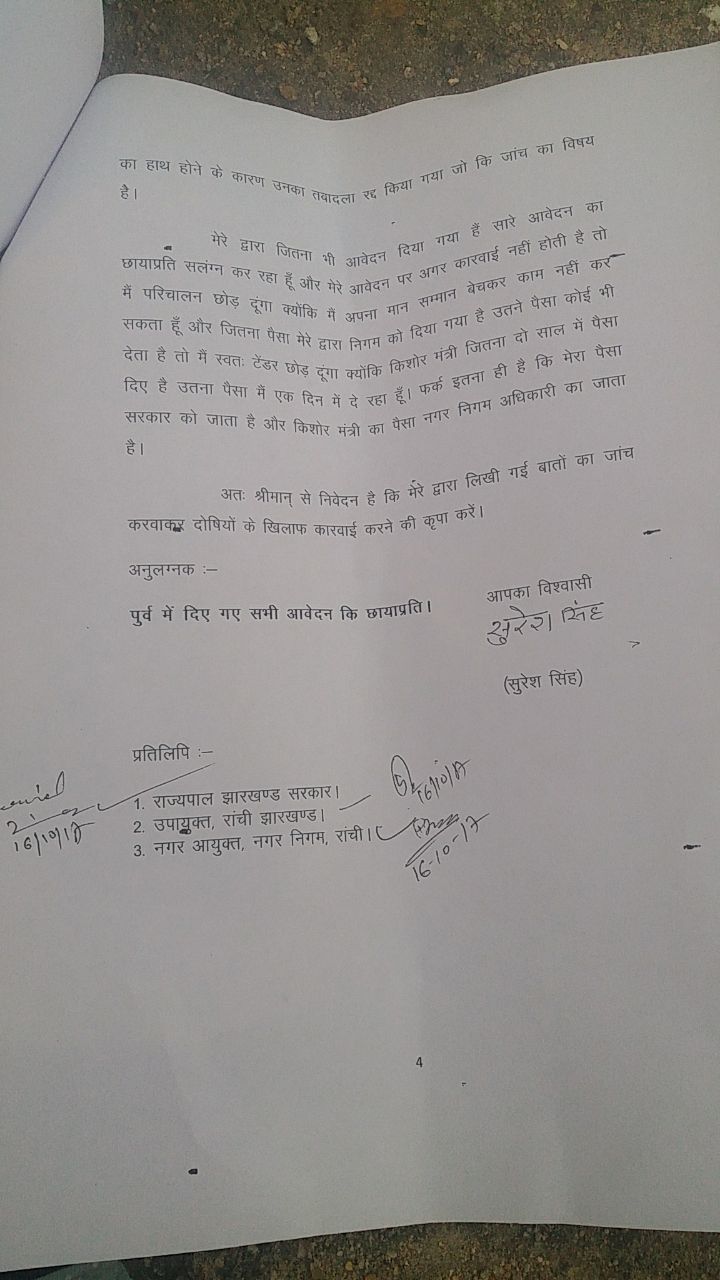 का हाथ होने के कारण उनका तबादला रद्द किया गया जो कि जांच का विषय
है।
मेरे द्वारा जितना भी आवेदन दिया गया हैं सारे आवेदन का
छायाप्रति सलंग्न कर रहा हूँ और मेरे आवेदन पर अगर कारवाई नहीं होती है तो
मैं परिचालन छोड़ दूंगा क्योंकि मैं अपना मान सम्मान बेचकर काम नहीं कर
सकता हूँ और जितना पैसा मेरे द्वारा निगम को दिया गया है उतने पैसा कोई भी
देता है तो मैं स्वतः टेंडर छोड़ दूंगा क्योंकि किशोर मंत्री जितना दो साल में पैसा
दिए है उतना पैसा मैं एक दिन में दे रहा हूँ। फर्क इतना ही है कि मेरा पैसा
सरकार को जाता है और किशोर मंत्री का पैसा नगर निगम अधिकारी का जाता
है।
अतः श्रीमान् से निवेदन है कि मेरे द्वारा लिखी गई बातों का जांच
करवाकर दोषियों के खिलाफ कारवाई करने की कृपा करें।
अनुलग्नक :–
आपका विश्वासी
पुर्व में दिए गए सभी आवेदन कि छायाप्रति।
सुरेश सिंह
(सुरेश सिंह)
प्रतिलिपि :–
1. राज्यपाल झारखण्ड सरकार।
16/10/17
2. उपायुक्त, रांची झारखण्ड।
16/10/17
3. नगर आयुक्त, नगर निगम, रांची।
16-10-17
4